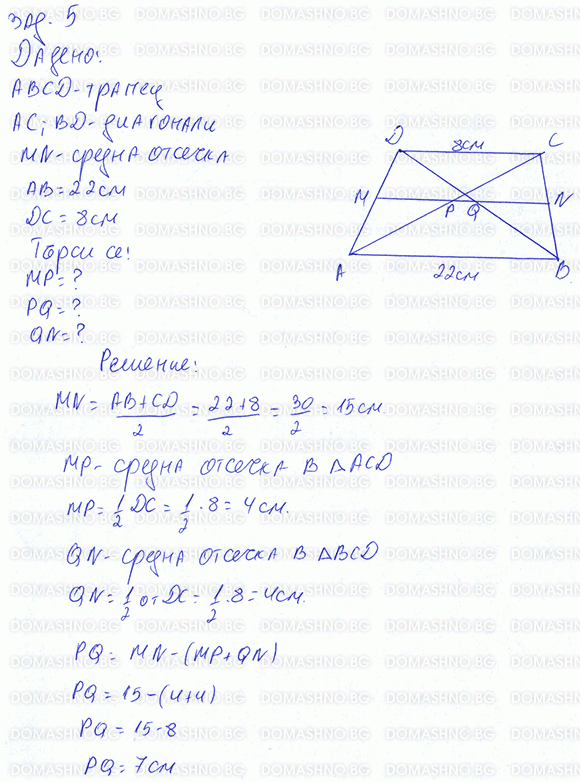 зад. 5
Дадено:
ABCD-трапец
AC; BD-диагонали
MN-средна отсечка
AB=22см
DC=8см
Търси се:
MP=?
PQ=?
QN=?
D 8см C
M P Q N
A 22см B
Решение:
MN = AB+CD/2 = 22+8/2 = 30/2 = 15см
MP- средна отсечка в △ACD
MP= 1/2 DC = 1/2 . 8 = 4см.
QN- средна отсечка в △BCD
QN= 1/2 от DC = 1/2 . 8 = 4см.
PQ = MN-(MP+QN)
PQ = 15-(4+4)
PQ = 15-8
PQ = 7см
DOMASHNO.BG